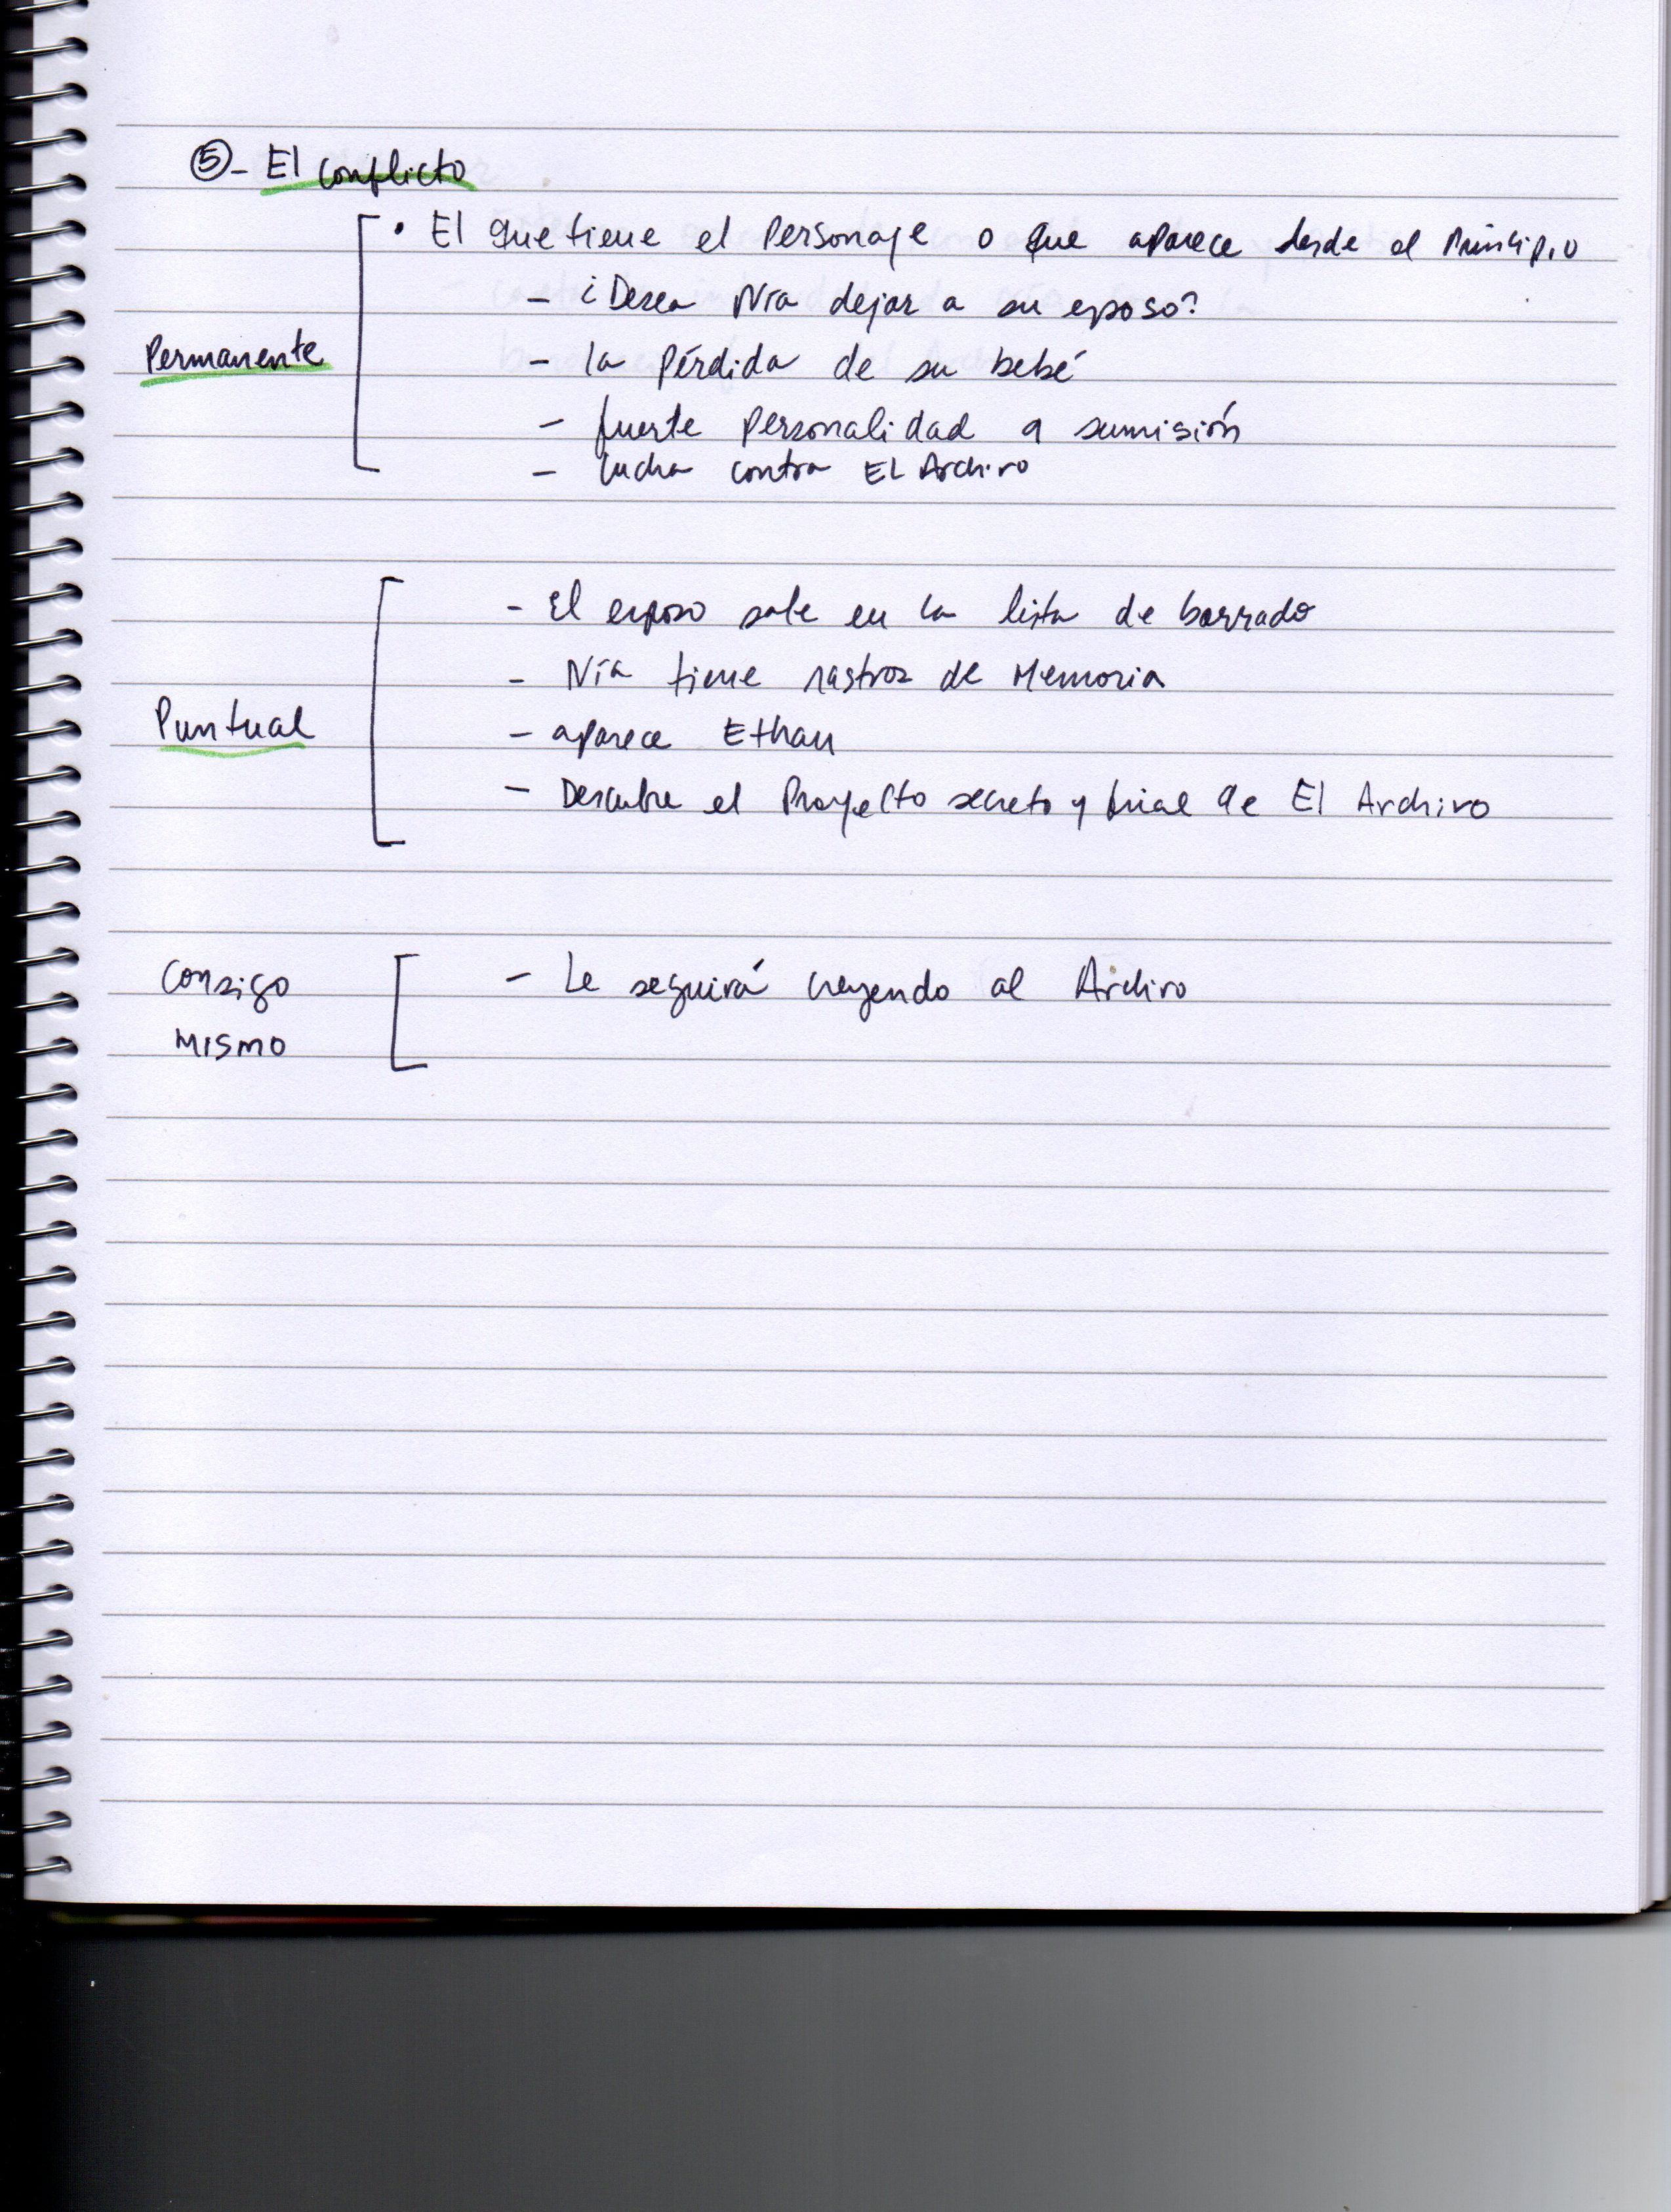 ⑤- El conflicto
• El que tiene el personaje o que aparece desde el principio
- ¿Desea Nía dejar a su esposo?
Permanente
- la pérdida de su bebé
- fuerte personalidad a sumisión
- lucha contra EL Archivo
- El esposo sale en la lista de borrado
- Nía tiene rastros de Memoria
Puntual
- aparece Ethan
- Descubre el Proyecto secreto y final de El Archivo
Consigo
- Le seguirá creyendo al Archivo
MISMO